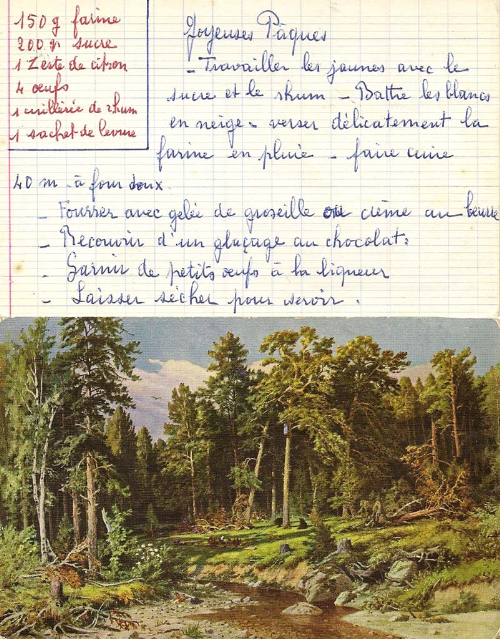 150 g farine
200 gr sucre
1 Zeste de citron
4 oeufs
1 cuillérée de rhum
1 sachet de levure
Joyeuses Pâques
- Travailler les jaunes avec le
sucre et le rhum - Battre les blancs
en neige - verser délicatement la
farine en pluie - faire cuire
40 m à four doux.
- Fourrer avec gelée de groseille ou crème au beurre
- Recouvrir d'un glaçage au chocolat
- Garnir de petits oeufs à la liqueur
- Laisser sécher pour servir.